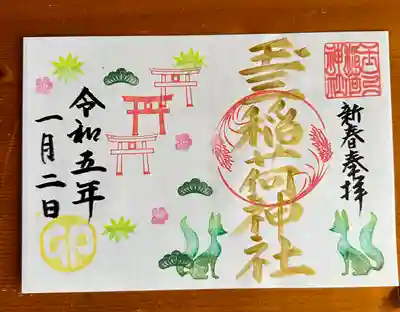 新春奉拝
稲荷神社
令和五年
一月二日